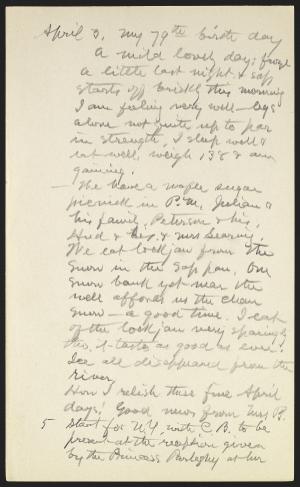 April 3. My 79th birth day
A mild lovely day; froze
a little last night & sap
starts off briskly this morning
I am feeling very well – legs
alone not quite up to par
in strength, I sleep well &
eat well, weigh 138 & am
gaining.
– We have a maple sugar
picnick in P.M. Julian &
his family, Peterson & his,
Hud & his, & Mrs
We eat lockjaw from the
snow in the sap pan. One
snow bank yet near the
well affords us the clean
snow – a good time. I eat
of the lockjaw very sparingly
tho, it tastes as good as ever.
Ice all disappeared from the
river,
How I relish these fine April
days. Good news from Mrs B.
5 Start for N.Y. with C.B. to be
present at the reception given
by the Princess at her